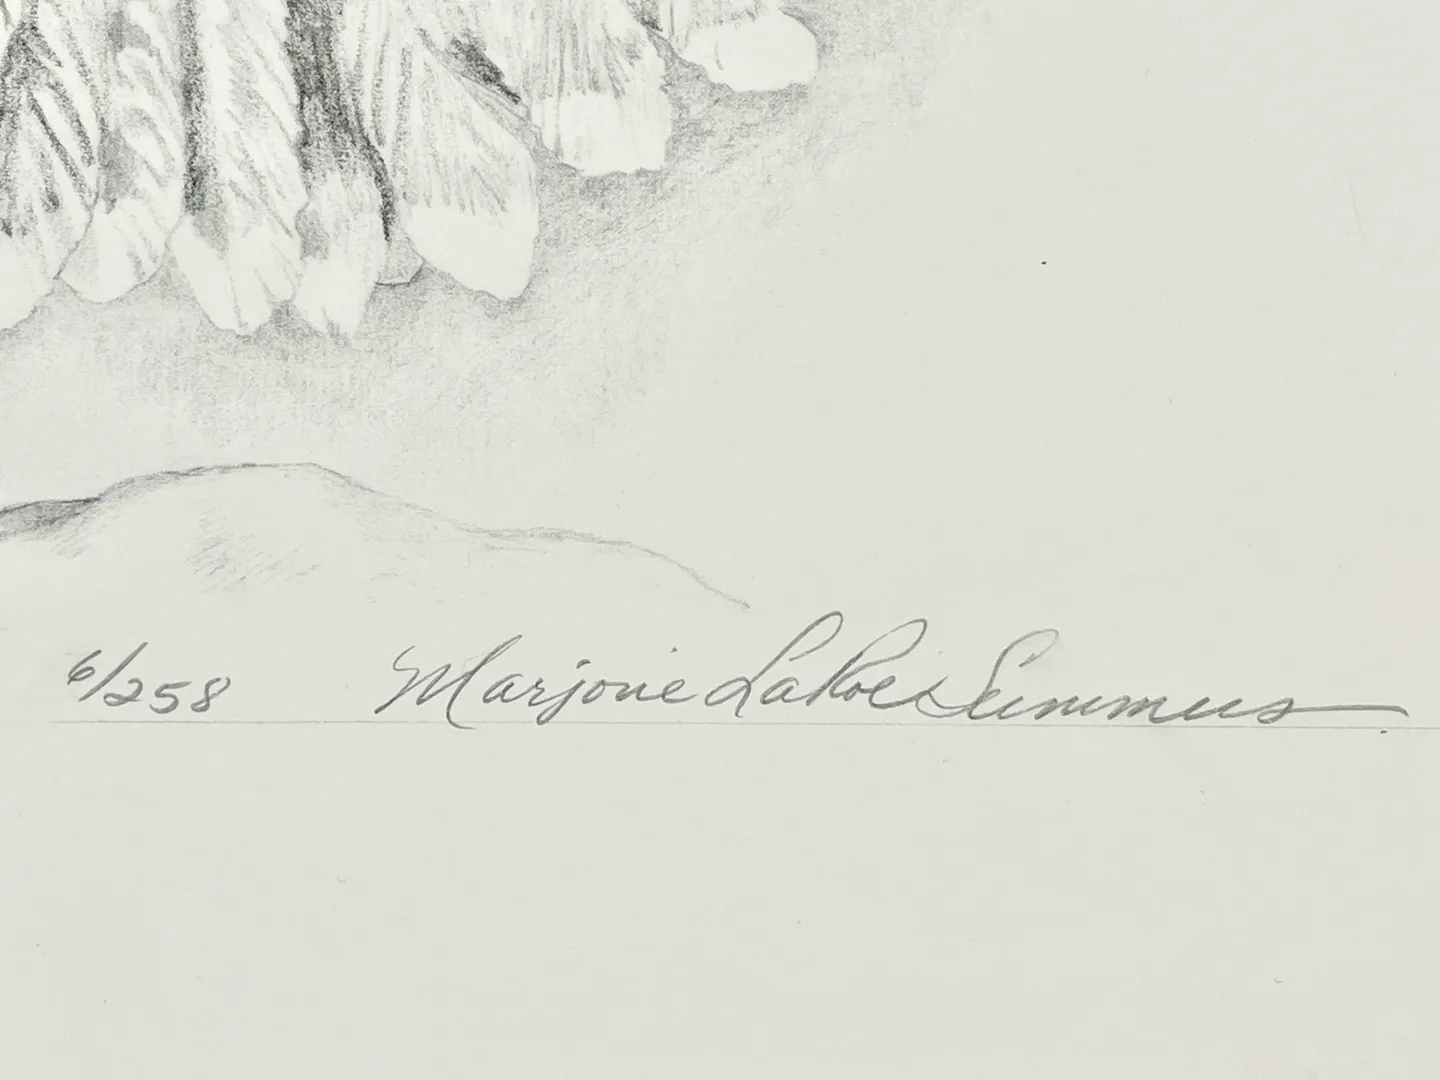 6/258 Marjorie LaRoe Summers